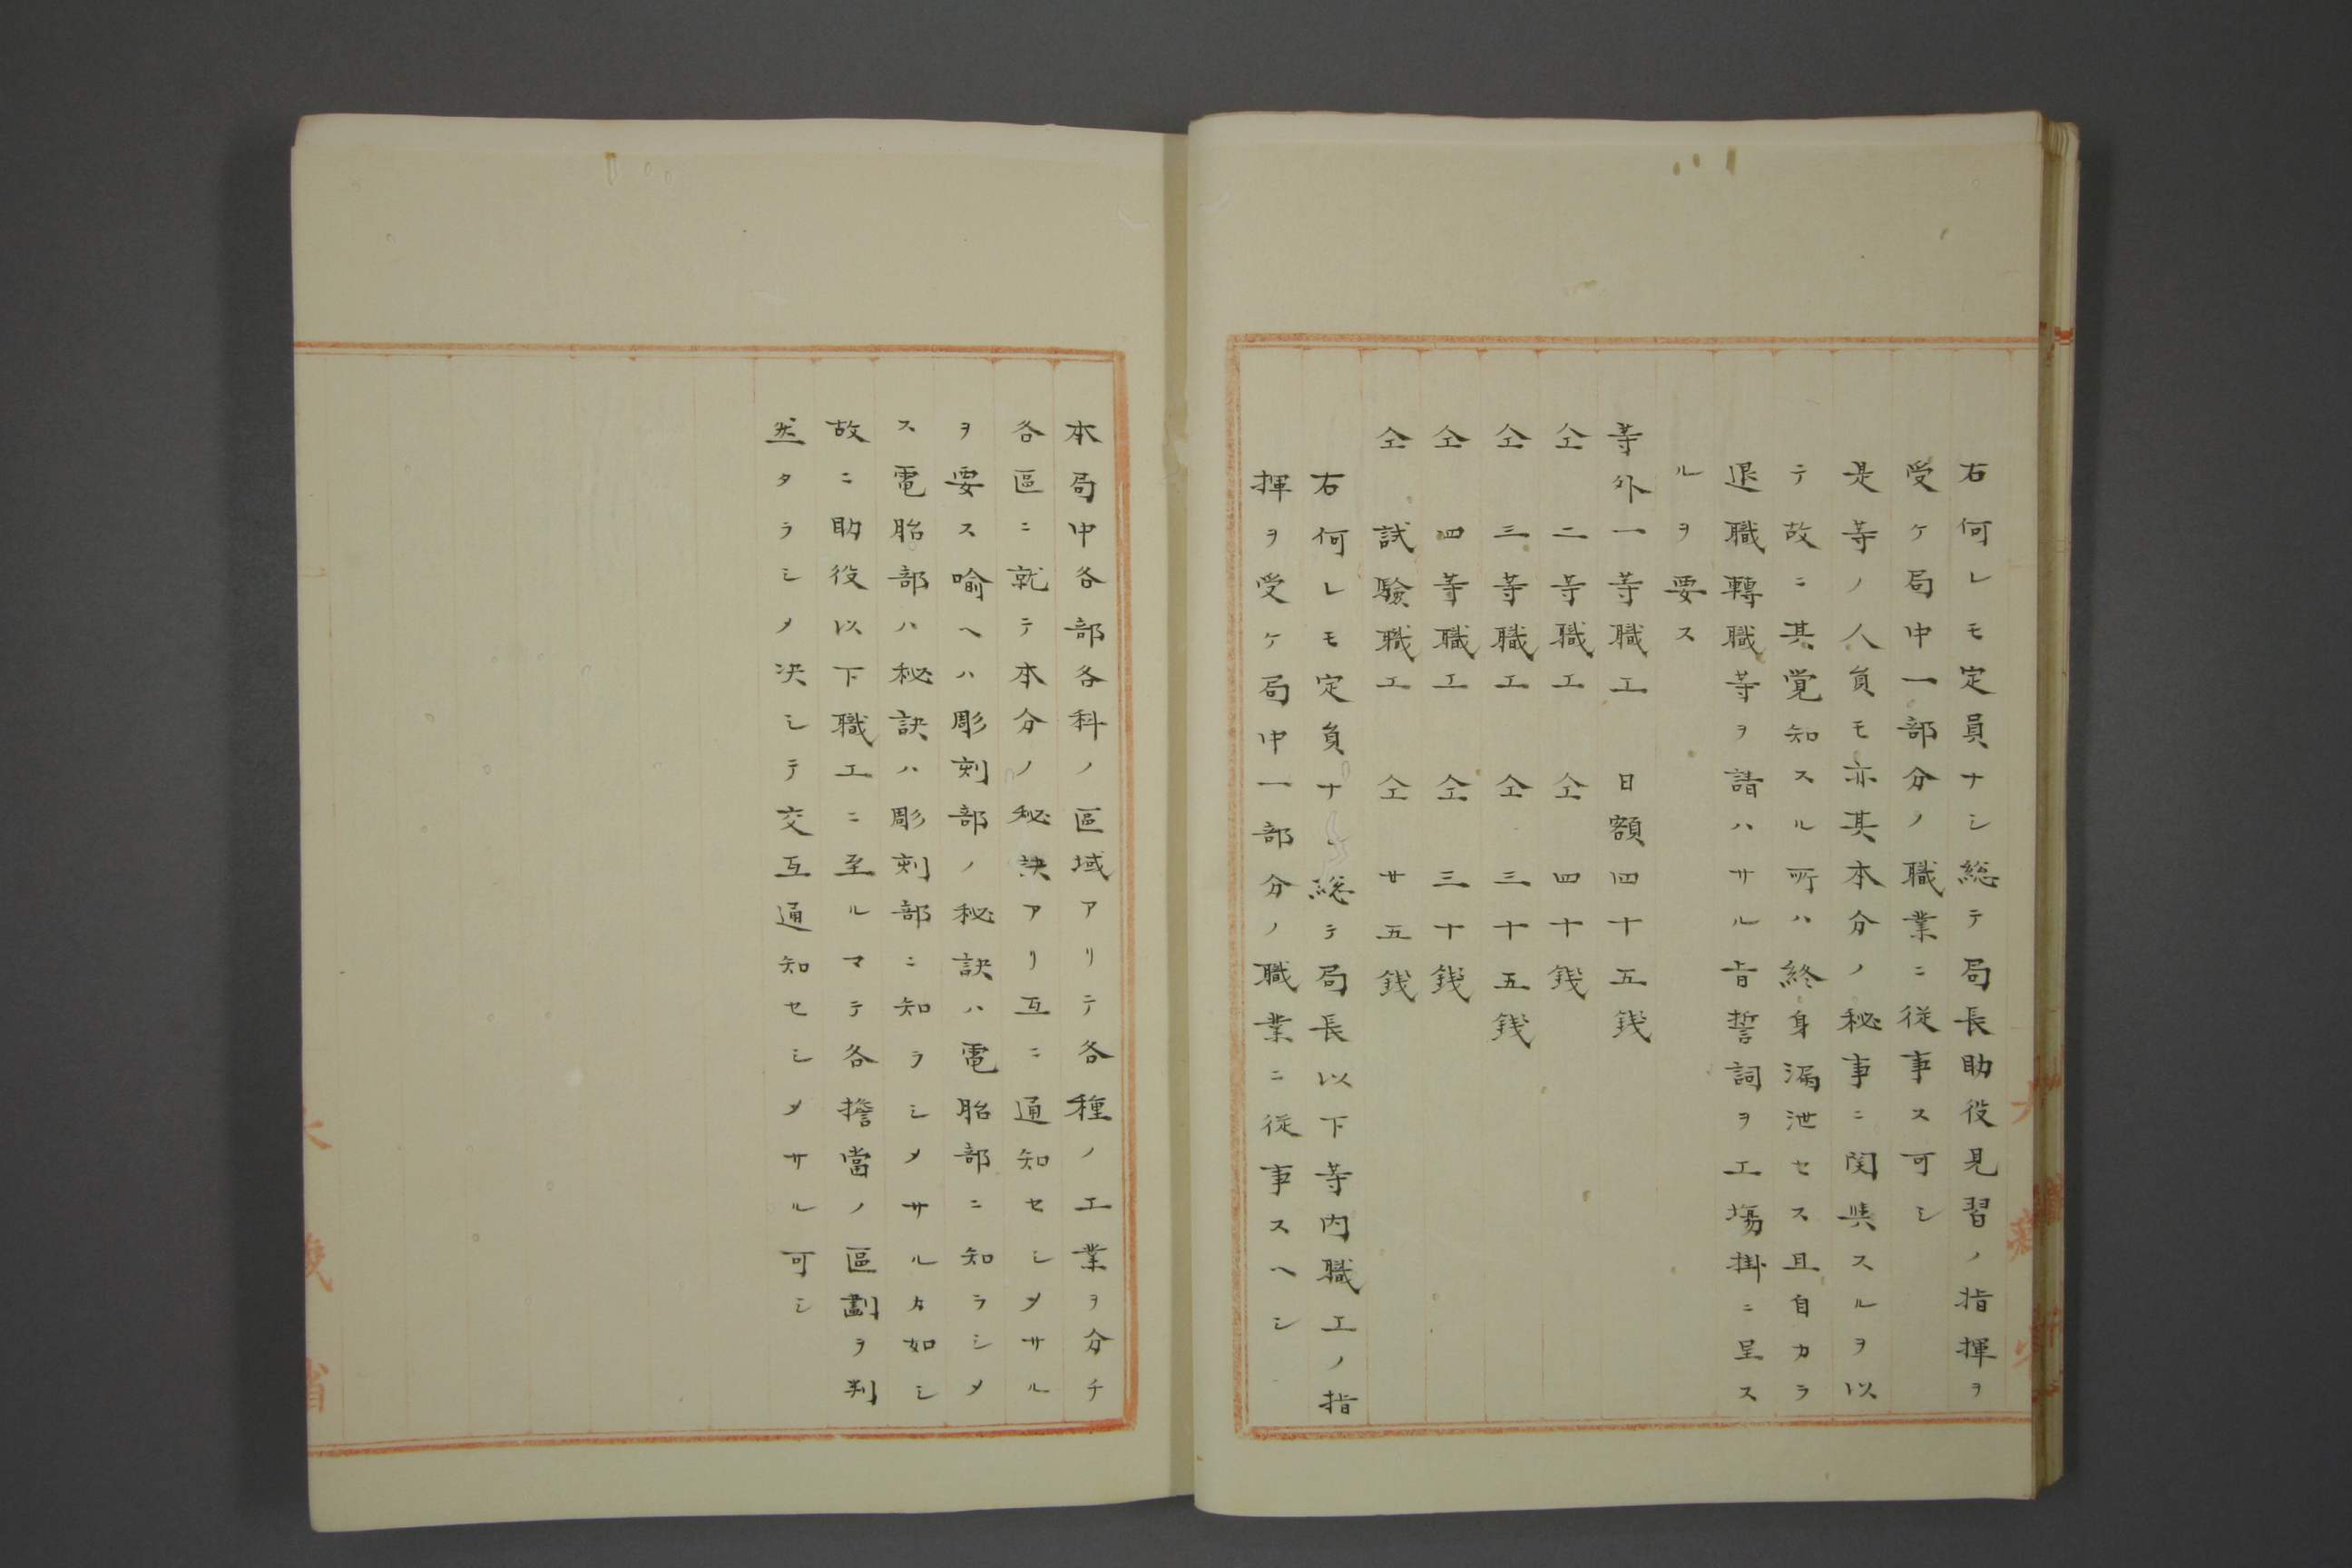 右何レモ定員ナシ総テ局長助役見習ノ指揮ヲ
受ケ局中一部分ノ職業ニ従事ス可シ
是等ノ人負モ亦其本分ノ秘事ニ関與スルヲ以
テ故ニ其覚知スル所ハ終身漏泄セス且自カラ
退職轉職等ヲ請ハサル旨誓詞ヲ工場掛ニ呈ス
ルヲ要ス
等外一等職工 日額四十五銭
仝 二等職工 仝 四十銭
仝 三等職工 仝 三十五銭
仝 四等職工 仝 三十銭
仝 試験職工 仝 廿五銭
右何レモ定負ナ 総テ局長以下等内職工ノ指
揮ヲ受ケ局中一部分ノ職業ニ従事スヘシ
本局中各部各科ノ區域アリテ各種ノ工業ヲ分チ
各區ニ就テ本分ノ秘訣アリ互ニ通知セシメサル
ヲ要ス喩ヘハ彫刻部ノ秘訣ハ電胎部ニ知ラシメ
ス電胎部ハ秘訣ハ彫刻部ニ知ラシメサルカ如シ
故ニ助役以下職工ニ至ルマテ各擔當ノ區劃ヲ判
然タラシメ决シテ交互通知セシメサル可シ